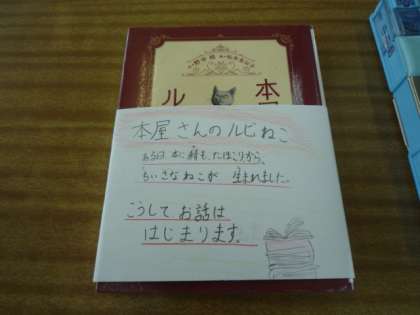 本
ル
本屋さんのルビねこ
ある日 本に積もったほこりから、
ちいさなねこが 生まれました。
こうして お話は
はじまります。